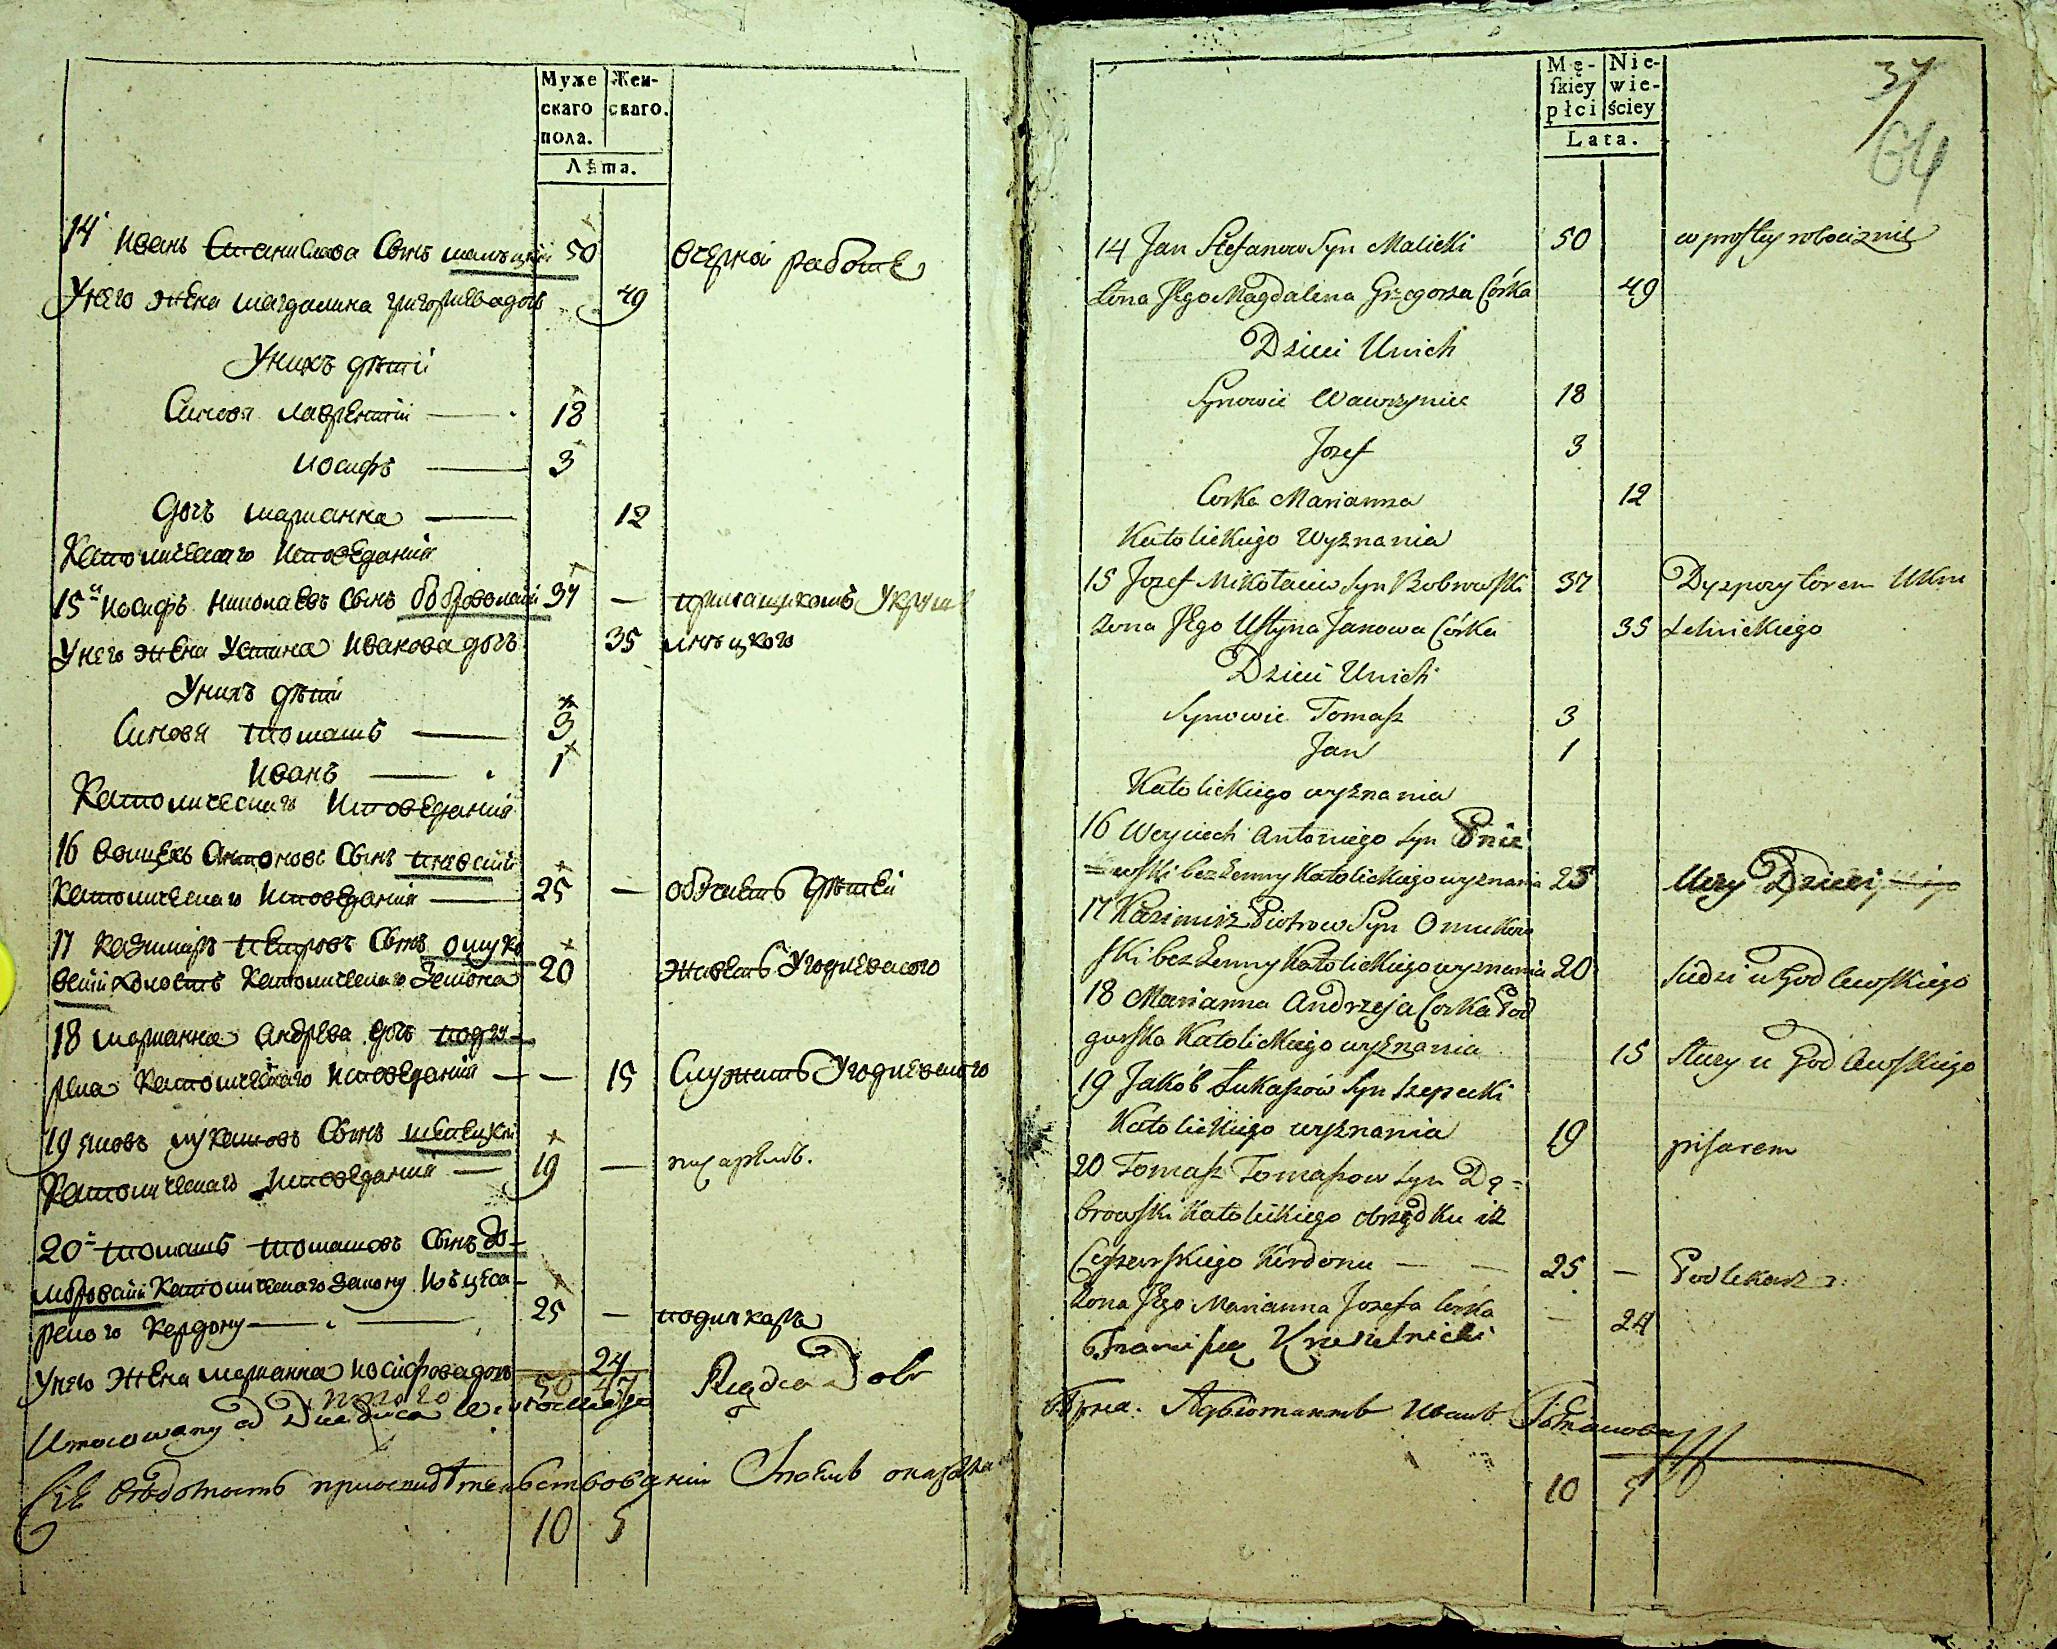 Муже
скаго
пола.
Жен-
скаго.
Лѣта.
14 Иванъ Станислава Сынъ малѣцкій 50 вчерной работе
Унего жена магдалина григориева дочь 49
Унихъ дѣти
Синовя лаврентій — 18
иосифъ — 3
дочь марианна — 12
Католическаго Исповеданія
15й Иосифъ Николаевъ Сынъ бобровский 37 —
Унего жена Устина Иванова дочь 35
Унихъ дѣти
Синовя томашъ — 3
Иванъ — 1
Католическаго Исповеданія
16 Войцехъ Антоновъ Сынъ
Католическаго Исповеданія — 25 — обучаетъ дѣтей
17 Казимиръ Петровъ Сынъ омуко
вский холостъ Католическаго Закона 20 живетъ Угодлевского
18 марианна андрѣева дочь подгу-
рска Католическаго Исповеданія — — 15 Служитъ Угодлевского
19 яковъ лукашовъ Сынъ шепецкій
Католическаго Исповеданія — 19 — писаремъ.
20й томашъ томашовъ Сынъ до-
мбровский Католическаго закону изъ цеса-
рского кордону — 25 — подлекарь
Унего жена марианна иосифова дочь 24
50 47 Rządca Dobr
Сіѣ вѣдомость
10 5
Mę-
ſkiey
płci
Nie-
wie-
ściey
Lata.
37
64
14 Jan Stefanow Syn Malicki 50 w prostey robociznie
Żona Jego Magdalena Grzegorza Córka 49
Dzieci Unich
Synowie Wawrzyniec 18
Jozef 3
Corka Marianna 12
Katolickiego Wyznania
15 Jozef Mikołaiew Syn Bobrowski 37 Dyspozytorem
Zona Jego Ustyna Janowa Córka 35
Dzieci Unich
Synowie Tomasz 3
Jan 1
Katolickiego wyznania
16 Woyciech Antoniego Syn Gnie
=wski bezżenny Katolickiego wyznania 25 Uczy Dzieci
17 Kazimirz Piotrow Syn Omukow
ski bezżenny Katolickiego wyznania 20 siedzi u Godlewskiego
18 Marianna Andrzeja Corka Pod
gurska Katolickiego wyznania 15 Służy u Godlewskiego
19 Jakób Łukaszów Syn Szepecki
Katolickiego wyznania 19 pisarem
20 Tomasz Tomaszow Syn Dą=
browski Katolickiego obrządku iz
Cesarskiego Kordonu — — 25 — Podlekarz
Zona Jego Marianna Jozefa Corka — 24
Иванъ
10 5